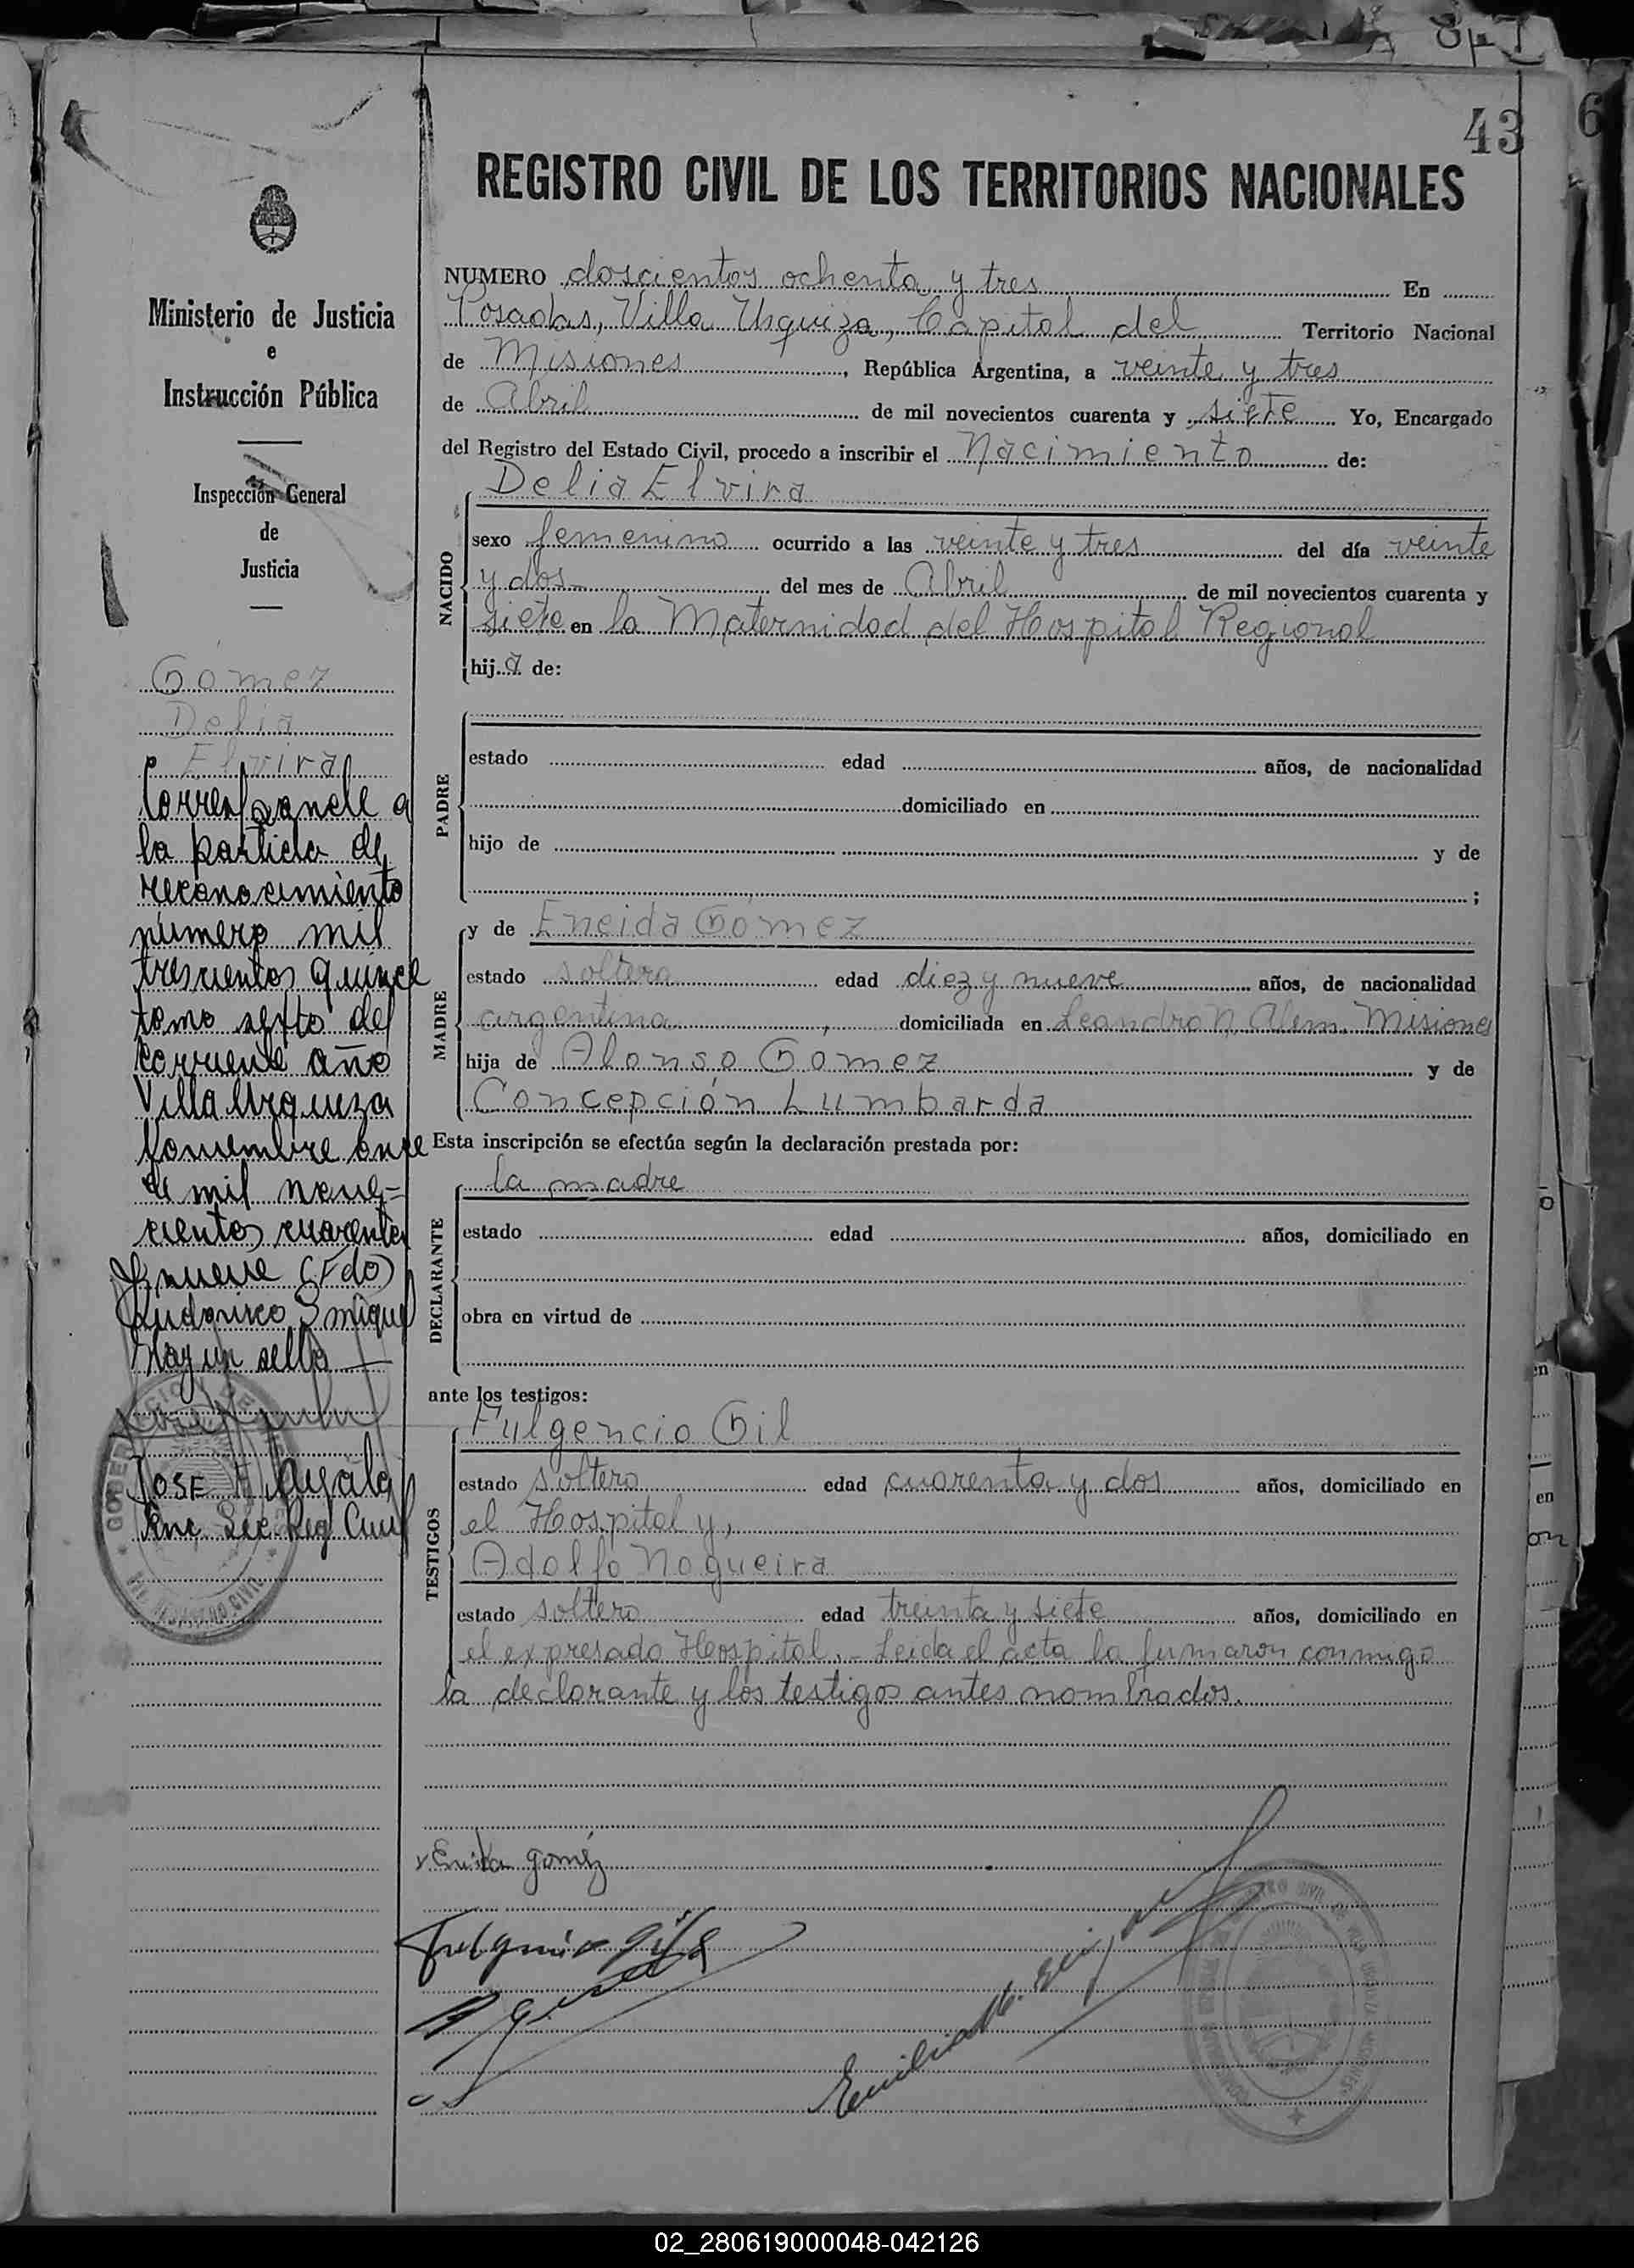 43
REGISTRO CIVIL DE LOS TERRITORIOS NACIONALES
Ministerio de Justicia
e
Instrucción Pública
Inspección General
de
Justicia
Gómez
Delia
Elvira
Corresponde a
la partida de
reconocimiento
número mil
trescientos quince
tomo sexto del
corriente año
Villa Urquiza
once
de mil nove-
cientos cuarenta
y nueve (Fdo)
Ludovico S miquel
Hay un sello
JOSE A Ayala
Enc Sec Reg Civil
NUMERO doscientos ochenta y tres En
Posadas, Villa Urquiza, Capital del Territorio Nacional
de Misiones, República Argentina, a veinte y tres
de Abril de mil novecientos cuarenta y siete Yo, Encargado
del Registro del Estado Civil, procedo a inscribir el Nacimiento de:
Delia Elvira
NACIDO
sexo femenino ocurrido a las veinte y tres del día veinte
y dos del mes de Abril de mil novecientos cuarenta y
siete en la Maternidad del Hospital Regional
hija de:
PADRE
estado edad años, de nacionalidad
domiciliado en
hijo de y de
;
MADRE
y de Eneida Gómez
estado soltera edad diez y nueve años, de nacionalidad
argentina, domiciliada en Leandro N. Alem. Misiones
hija de Alonso Gómez y de
Concepción Lumbarda
Esta inscripción se efectúa según la declaración prestada por:
la madre
DECLARANTE
estado edad años, domiciliado en
obra en virtud de
ante los testigos:
TESTIGOS
Fulgencio Gil
estado soltero edad cuarenta y dos años, domiciliado en
el Hospital y,
Adolfo Nogueira
estado soltero edad treinta y siete años, domiciliado en
el expresado Hospital.- Leida el acta la firmaron conmigo
la declarante y los testigos antes nombrados.
Eneida gomez
Fulgencio Gil
02_280619000048-042126